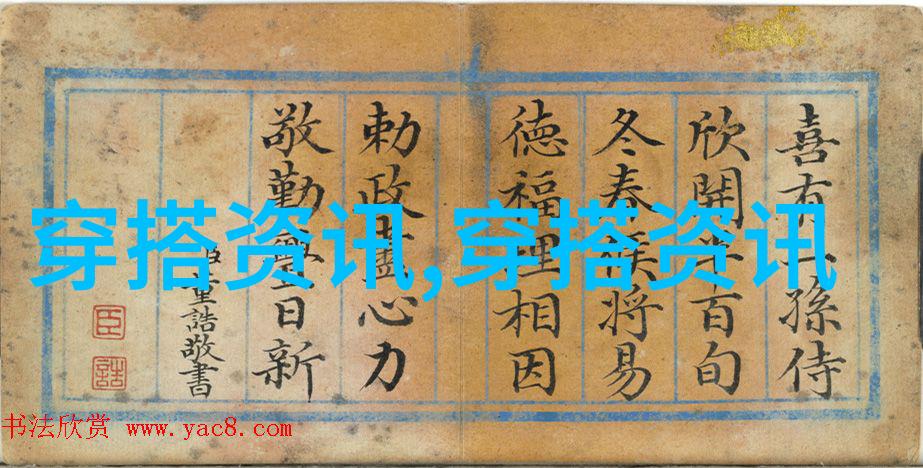 喜有孫侍
欣開半百旬
冬春候將易
徳福理相因
勅政盡心力
敬勤學日新
臣董誥敬書
臣
誥
穿搭资讯,穿搭资讯
书法欣赏 www.yac8.com